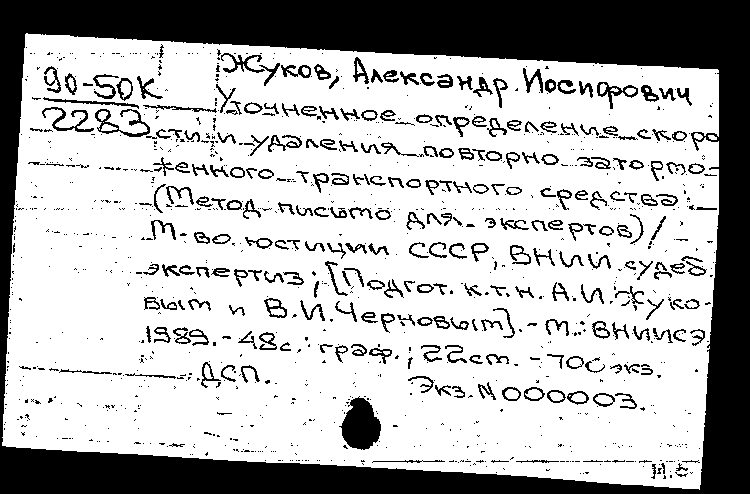 Жуков, Александр Иосифович
90-50К
2283
Уточненное определение скоро
сти и удаления повторно затормо-
женного транспортного средства :
(Метод. письмо для экспертов) /
М-во юстиции СССР, ВНИИ судеб.
экспертиз ; [Подгот. к.т.н. А.И. Жуко-
вым и В.И. Черновым]. - М. : ВНИИСЭ
1989. - 48с. : граф. ; 22см. - 700 экз.
ДСП. Экз. N 000003.